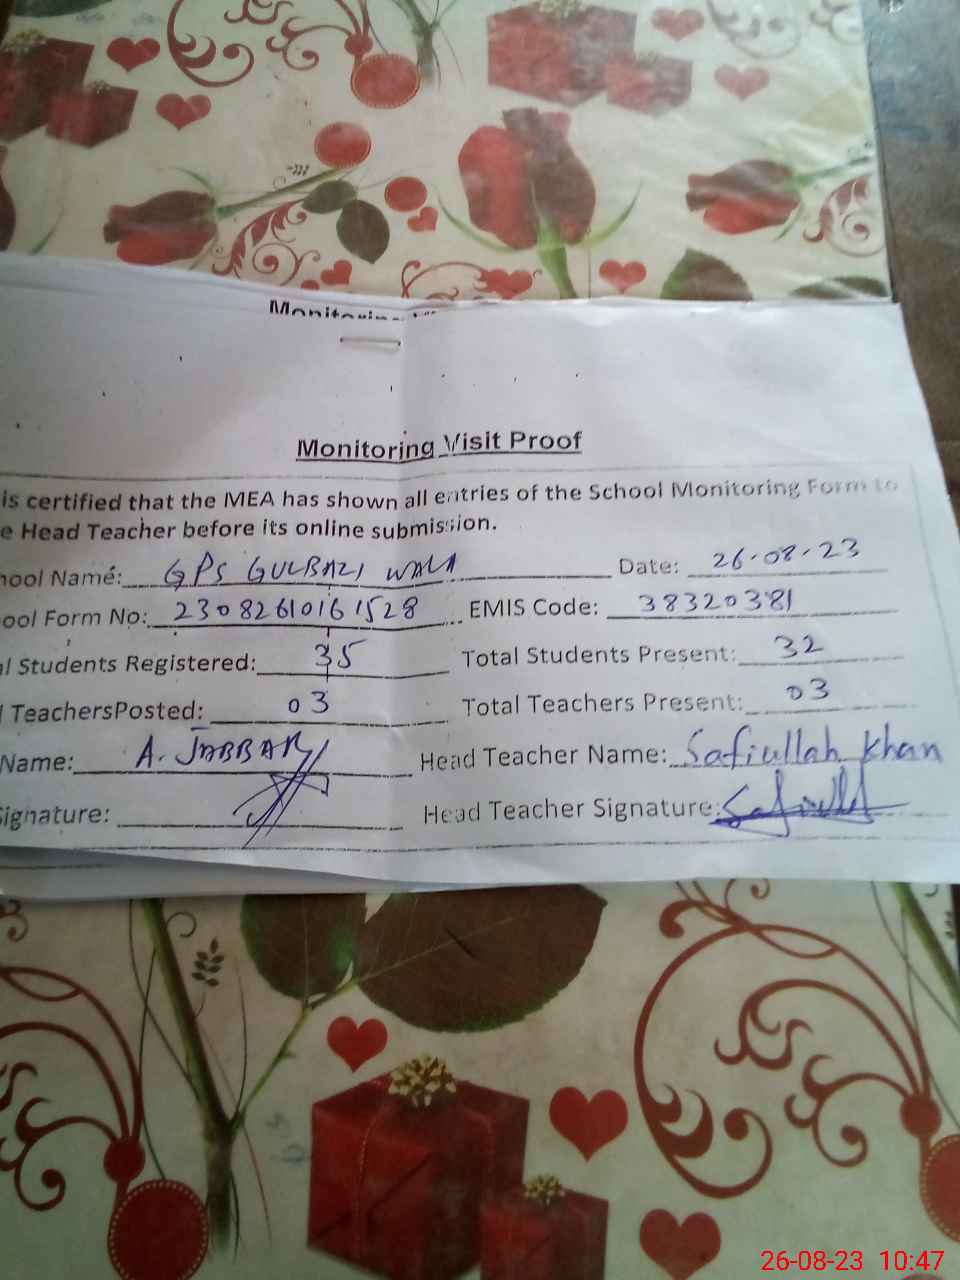 Monitoring Visit Proof
is certified that the MEA has shown all entries of the School Monitoring Form to
e Head Teacher before its online submission.
hool Name: GPS GULBAZI WALA Date: 26-08-23
ool Form No: 23082610161528 EMIS Code: 38320381
al Students Registered: 35 Total Students Present: 32
l TeachersPosted: 03 Total Teachers Present: 03
Name: A. JABBAR Head Teacher Name: Safiullah Khan
Signature: Head Teacher Signature: Safiullah
26-08-23 10:47